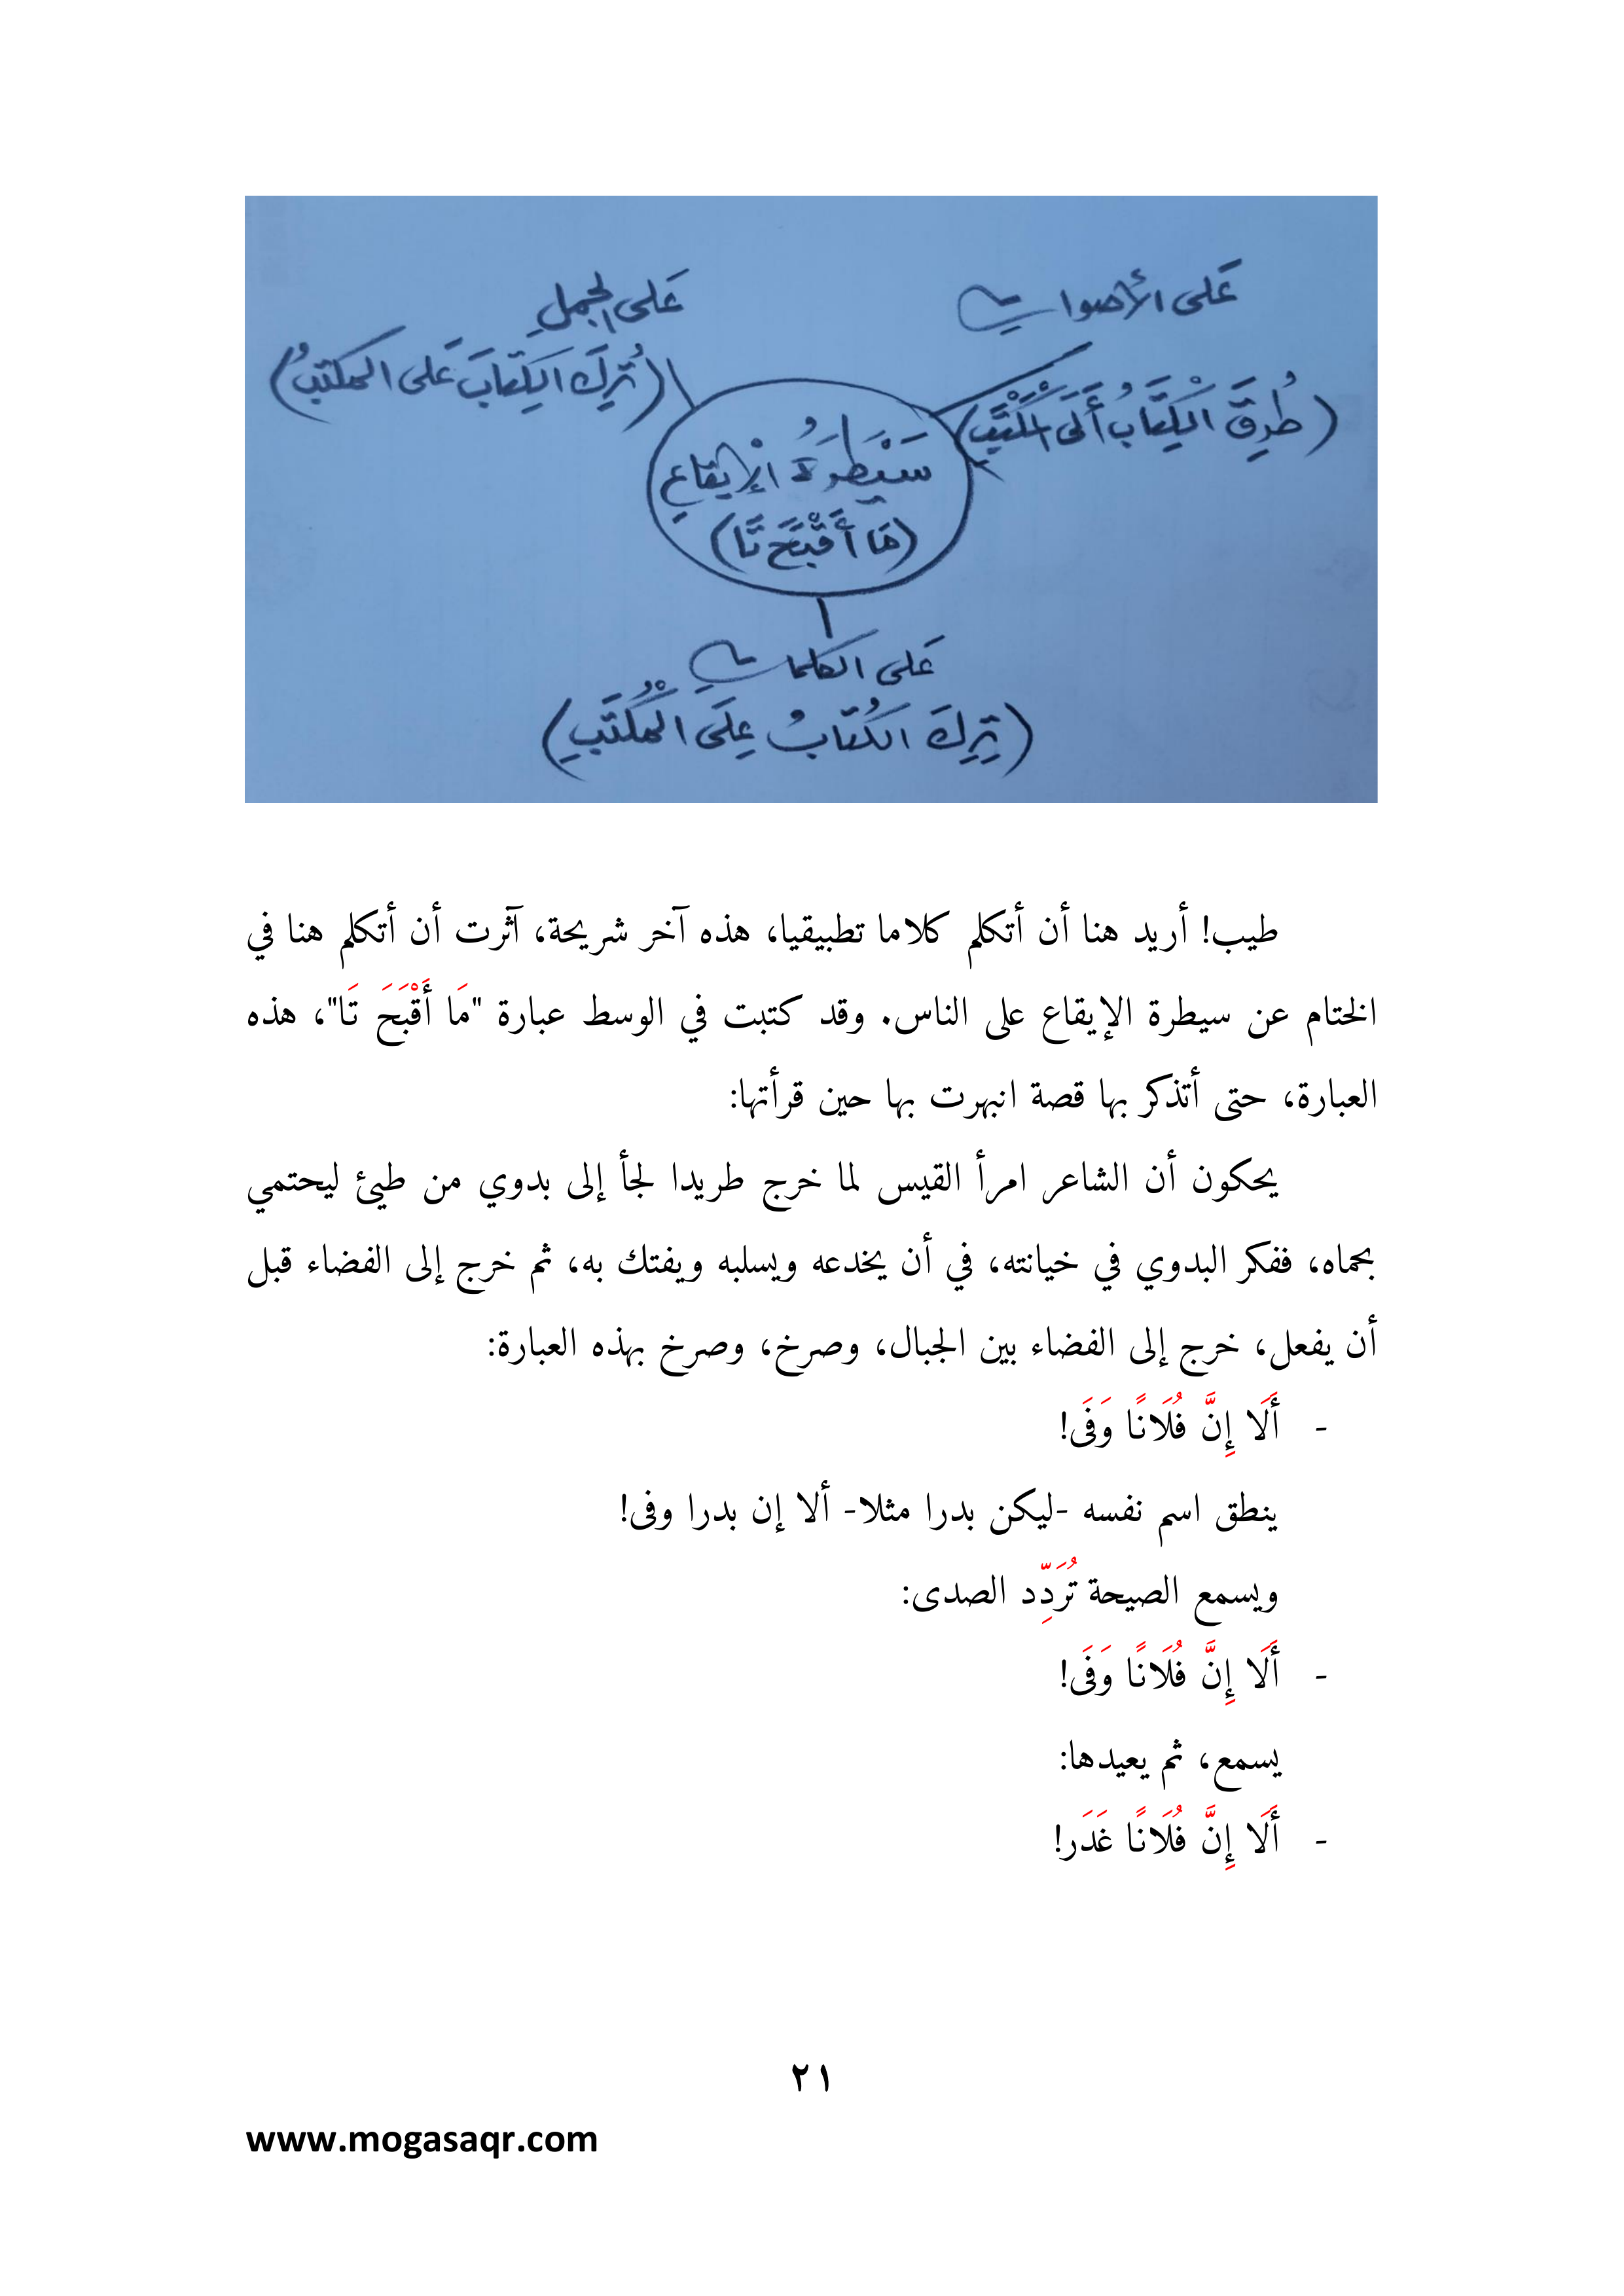 عَلى الأصواتِ
(طُرِقَ الْكِتَابُ أَلَى الْمَكْتَبِ)
عَلى الجملِ
(تُرِكَ الكِتابَ عَلى المكتبُ)
سَيْطَرَةُ الْإيقاعِ
(مَا أَقْبَحَ تَا)
عَلى الكلماتِ
(تِرِكَ الكُتابُ عِلَى المُكْتَبِ)
طيب! أريد هنا أن أتكلم كلاما تطبيقيا، هذه آخر شريحة، آثرت أن أتكلم هنا في
الختام عن سيطرة الإيقاع على الناس. وقد كتبت في الوسط عبارة "مَا أَقْبَحَ تَا"، هذه
العبارة، حتى أتذكر بها قصة انبهرت بها حين قرأتها:
يحكون أن الشاعر امرأ القيس لما خرج طريدا لجأ إلى بدوي من طيئ ليحتمي
بحماه، ففكر البدوي في خيانته، في أن يخدعه ويسلبه ويفتك به، ثم خرج إلى الفضاء قبل
أن يفعل، خرج إلى الفضاء بين الجبال، وصرخ، وصرخ بهذه العبارة:
- أَلَا إِنَّ فُلَانًا وَفَى!
ينطق اسم نفسه -ليكن بدرا مثلا- ألا إن بدرا وفى!
ويسمع الصيحة تُرَدِّد الصدى:
- أَلَا إِنَّ فُلَانًا وَفَى!
يسمع، ثم يعيدها:
- أَلَا إِنَّ فُلَانًا غَدَر!
٢١
www.mogasaqr.com